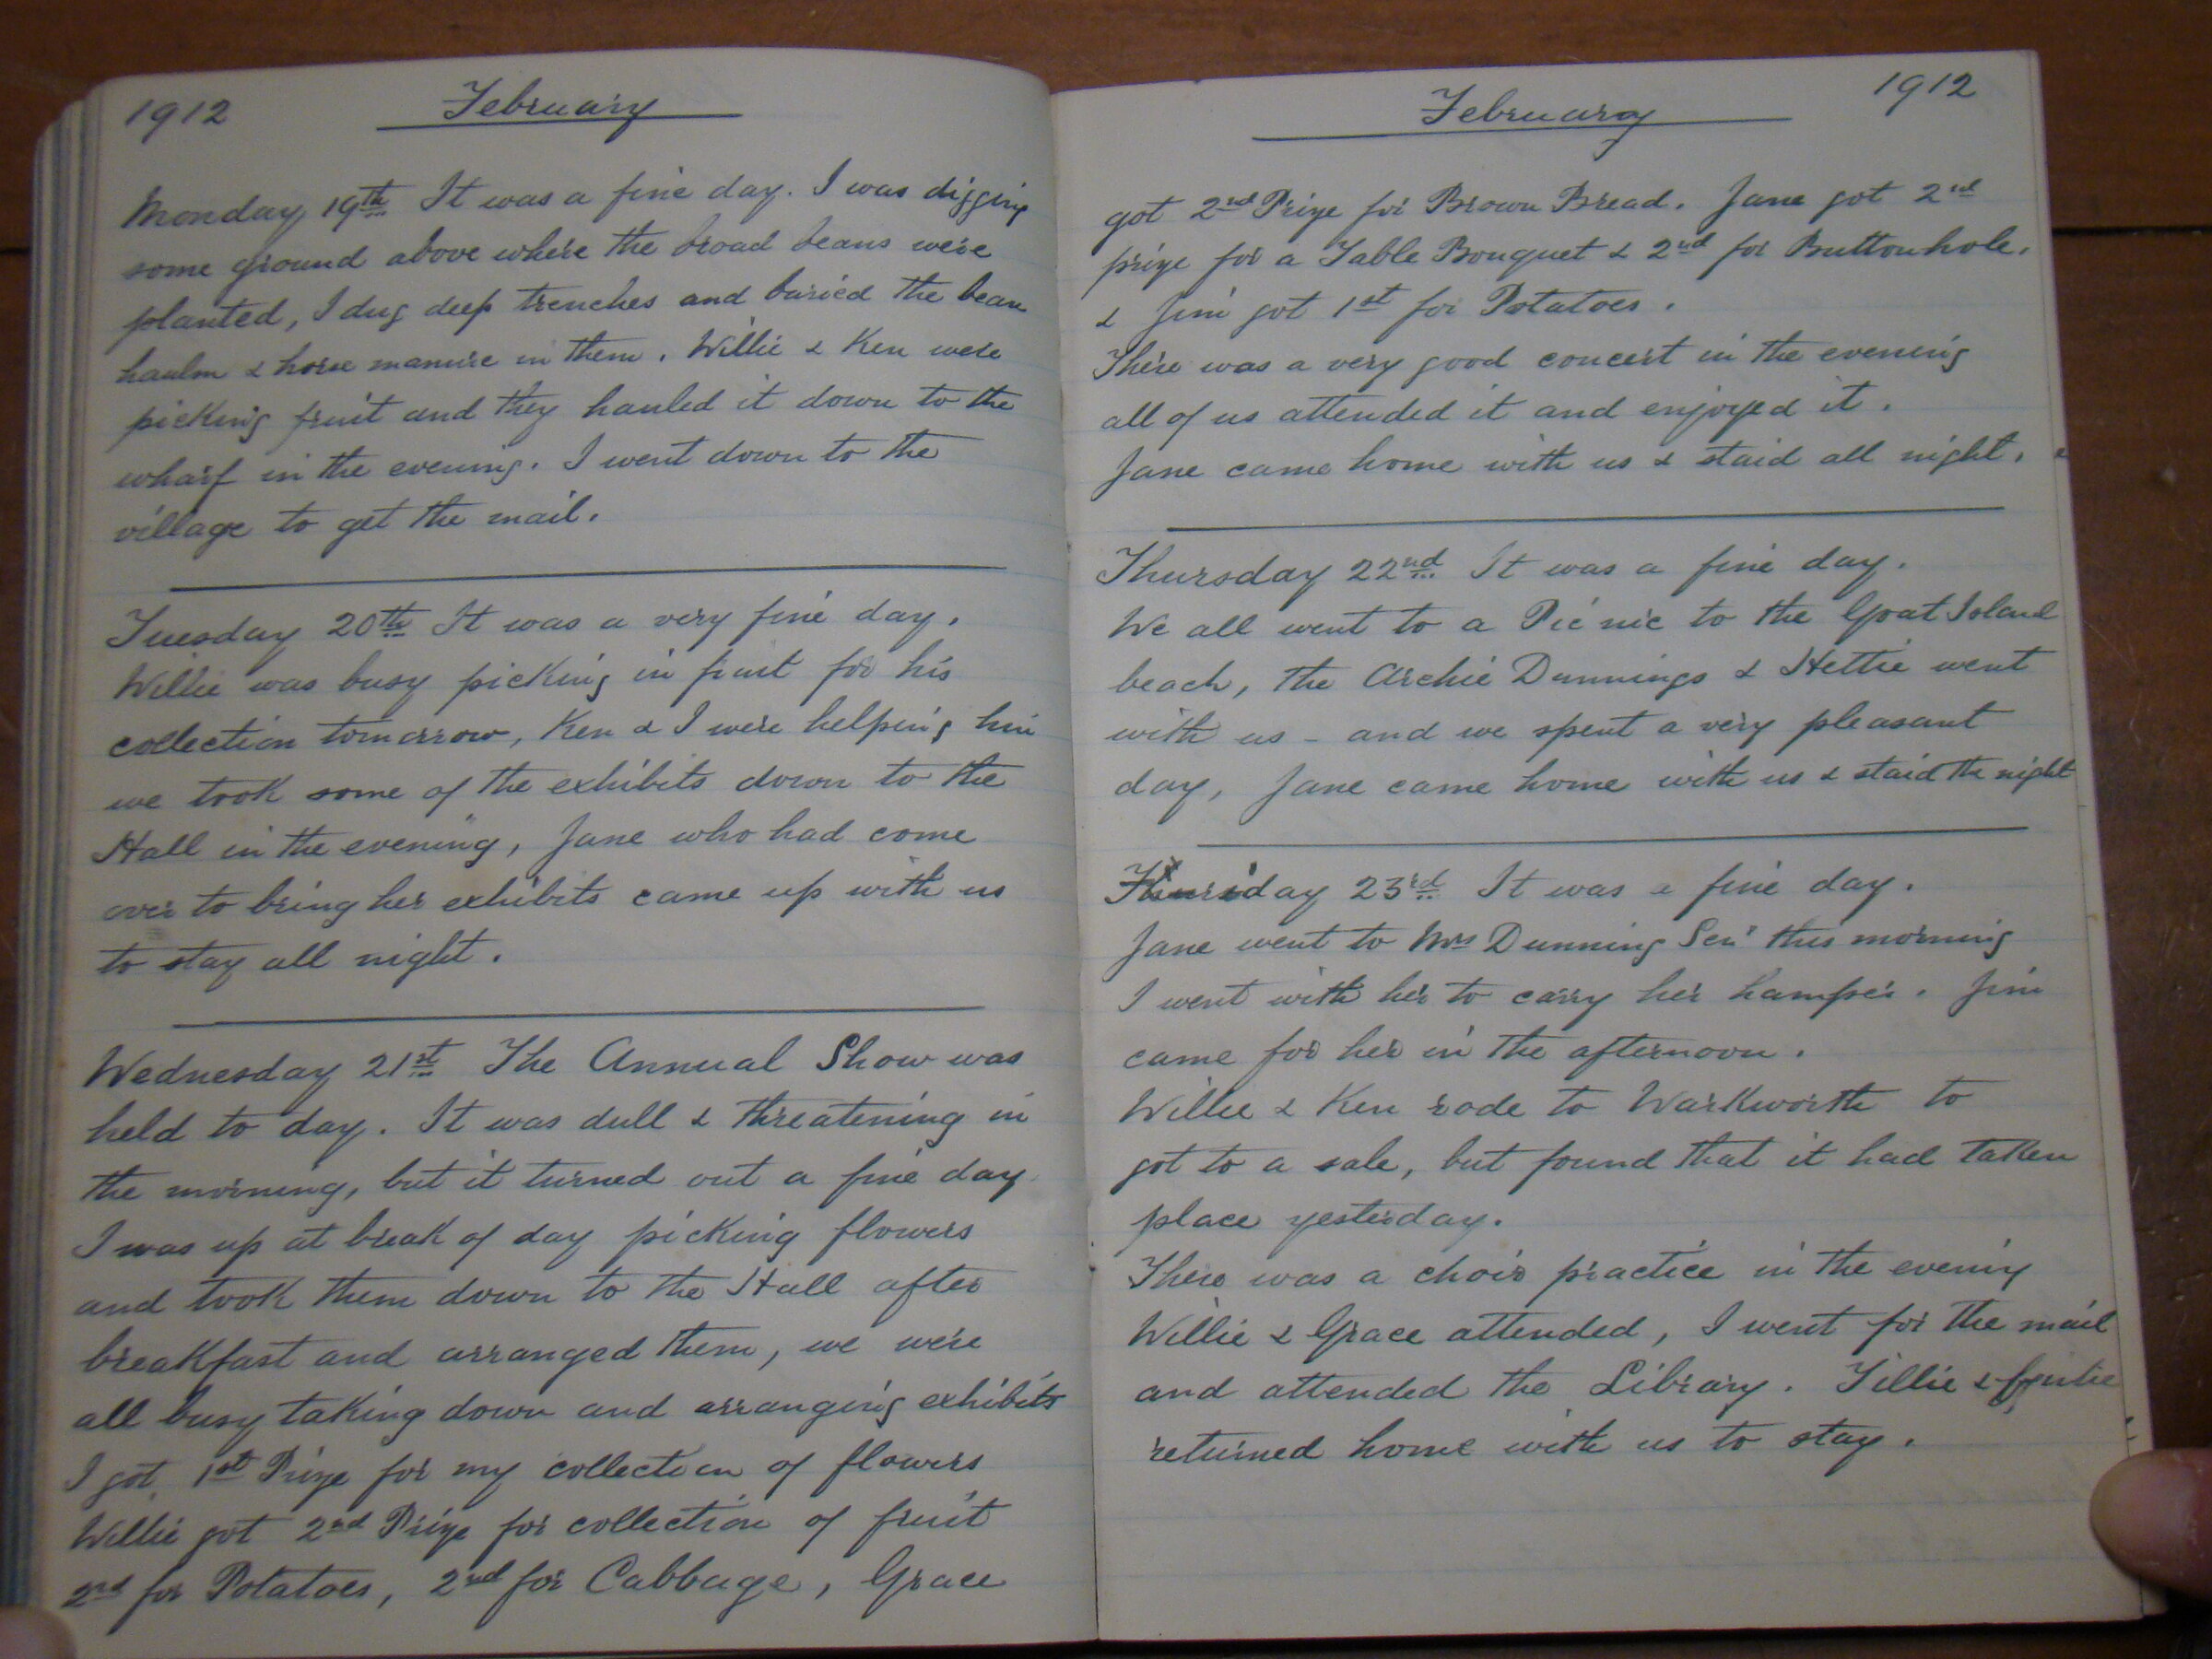 1912 February
Monday 19th It was a fine day. I was digging
some ground above where the broad beans were
planted, I dug deep trenches and buried the bean
haulm & horse manure in them. Willie & Ken were
picking fruit and they hauled it down to the
wharf in the evening. I went down to the
village to get the mail.
Tuesday 20th It was a very fine day.
Willie was busy picking in fruit for his
collection tomorrow, Ken & I were helping him
we took some of the exhibits down to the
Hall in the evening, Jane who had come
over to bring her exhibits came up with us
to stay all night.
Wednesday 21st The Annual Show was
held to day. It was dull & threatening in
the morning, but it turned out a fine day
I was up at break of day picking flowers
and took them down to the Hall after
breakfast and arranged them, we were
all busy taking down and arranging exhibits
I got 1st Prize for my collection of flowers
Willie got 2nd Prize for collection of fruit
2nd for Potatoes, 2nd for Cabbage, Grace
February 1912
got 2nd Prize for Brown Bread. Jane got 2nd
prize for a Table Bouquet & 2nd for Buttonhole.
& Jim got 1st for Potatoes.
There was a very good concert in the evening
all of us attended it and enjoyed it.
Jane came home with us & staid all night.
Thursday 22nd It was a fine day.
We all went to a Pic nic to the Goat Island
beach, the Archie Dunnings & Hettie went
with us - and we spent a very pleasant
day, Jane came home with us & staid the night
Friday 23rd It was a fine day.
Jane went to Mrs Dunning Senr this morning
I went with her to carry her hamper. Jim
came for her in the afternoon.
Willie & Ken rode to Warkworth to
got to a sale, but found that it had taken
place yesterday.
There was a choir practice in the evening
Willie & Grace attended, I went for the mail
and attended the Library. Tillie &
returned home with us to stay.